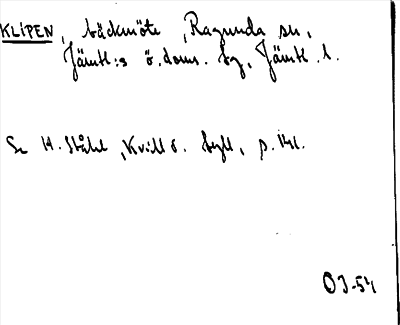 KLIPEN, bäckmöte, Ragunda sn,
Jämtl:s ö. doms. bg, Jämtl. l.
Se H. Ståhl, Kvill o. byll, p.
OJ-54